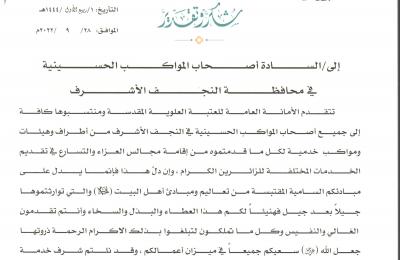 التاريخ: ١/ربيع الأول/١٤٤٤هـ
شكر وتقدير
الموافق: ٢٨ / ٩ /٢٠٢٢م
إلى/السادة أصحاب المواكب الحسينية
في محافظة النجف الأشرف
تتقدم الأمانة العامة للعتبة العلوية المقدسة ومنتسبوها كافة
إلى جميع أصحاب المواكب الحسينية في النجف الأشرف من أطراف وهيئات
ومواكب خدمية لكل ما قدمتموه من إقامة مجالس العزاء والتسارع في تقديم
الخدمات المختلفة للزائرين الكرام، وإن دلّ هذا فإنما يدل على
مبادئكم السامية المقتبسة من تعاليم ومبادئ أهل البيت (ﷺ) والتي توارثتموها
جيلاً بعد جيل فهنيئاً لكم هذا العطاء والبذل والسخاء وأنتم تقدمون
الغالي والنفيس وكل ما تملكون لتبلغوا بذلك الاكرام الرحمة ذروتها
جعل الله (ﷻ) سعيكم جميعاً في ميزان أعمالكم، وقد نلتم شرف خدمة